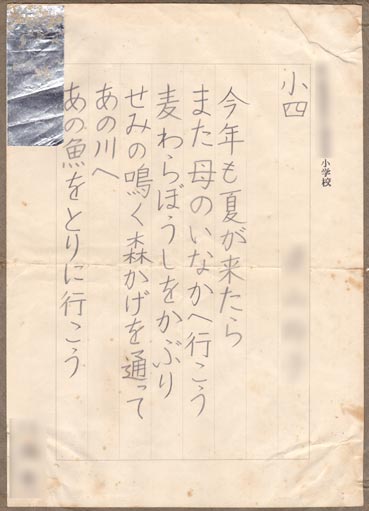 小学校
小四
今年も夏が来たら
また母のいなかへ行こう
麦わらぼうしをかぶり
せみの鳴く森かげを通って
あの川へ
あの魚をとりに行こう